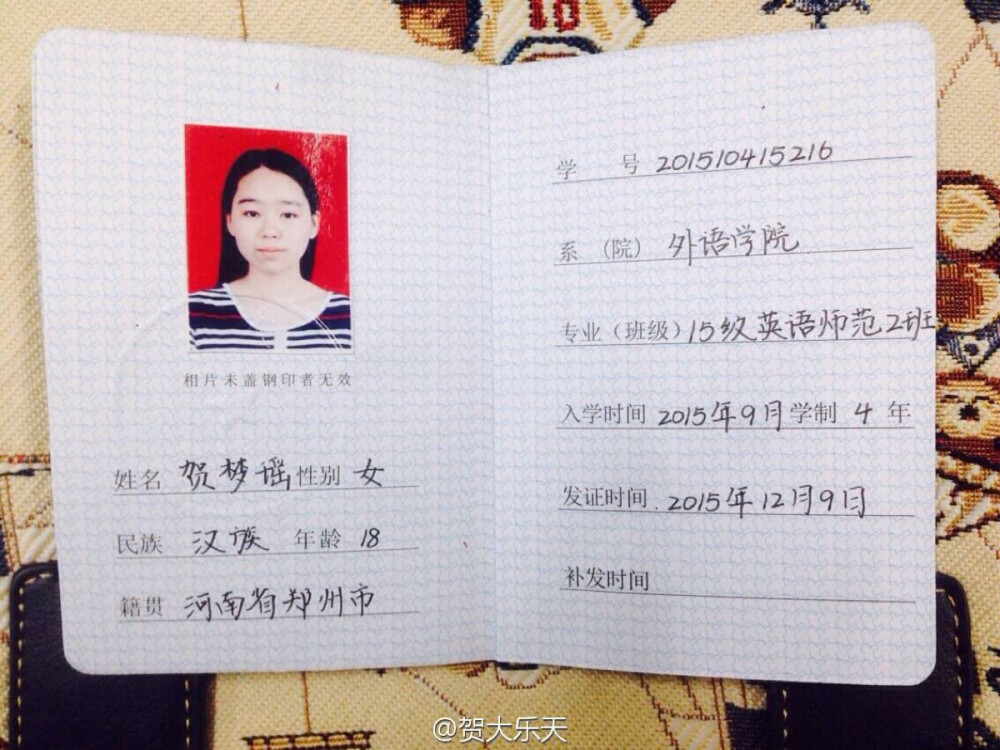 10
相片未盖钢印者无效
姓名 贺梦谣 性别 女
民族 汉族 年龄 18
籍贯 河南省郑州市
学 号 201510415216
系（院） 外语学院
专业（班级）15级英语师范2班
入学时间 2015年9月 学制 4 年
发证时间 2015年12月9日
补发时间
@贺大乐天